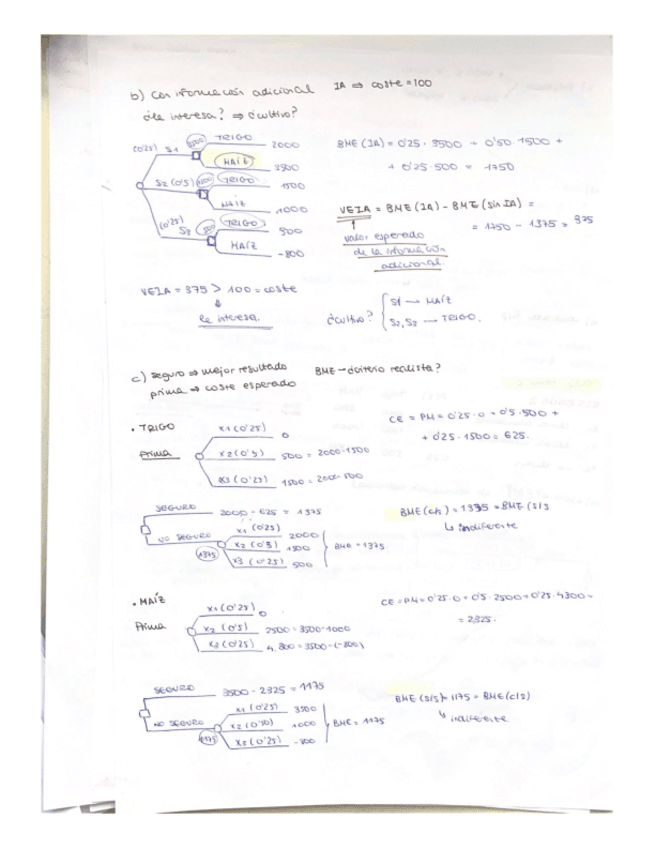 b) Con información adicional IA ⇒ coste = 100
¿le interesa? ⇒ ¿cultivo?
(0'25) S1 3500 TRIGO 2000
MAÍZ 3500
S2 (0'5) 1500 TRIGO 1500
MAÍZ 1000
(0'25) S3 500 TRIGO 500
MAÍZ -800
BME (IA) = 0'25 · 3500 + 0'50 · 1500 +
+ 0'25 · 500 = 1750
VEIA = BME (IA) - BME (sin IA) =
= 1750 - 1375 = 375
valor esperado
de la información
adicional.
VEIA = 375 > 100 = coste
le interesa.
¿cultivo? S1 — MAÍZ
S2, S3 — TRIGO.
c) seguro ⇒ mejor resultado BME — ¿criterio realista?
prima ⇒ coste esperado
• TRIGO
Prima
x1 (0'25) 0
x2 (0'5) 500 = 2000-1500
x3 (0'25) 1500 = 2000-500
CE = PM = 0'25 · 0 + 0'5 · 500 +
+ 0'25 · 1500 = 625.
SEGURO 2000 - 625 = 1375
NO SEGURO 1375
x1 (0'25) 2000
x2 (0'5) 1500 BME = 1375
x3 (0'25) 500
BME (c/s) = 1375 = BME (s/s
↳ indiferente
• MAÍZ
Prima
x1 (0'25) 0
x2 (0'5) 2500 = 3500-1000
x3 (0'25) 4,300 = 3500-(-800)
CE = PM = 0'25 · 0 + 0'5 · 2500 + 0'25 · 4300 =
= 2325.
SEGURO 3500 - 2325 = 1175
NO SEGURO 1175
x1 (0'25) 3500
x2 (0'50) 1000 BME = 1175
x3 (0'25) -800
BME (s/s) = 1175 = BME (c/s)
↳ indiferente